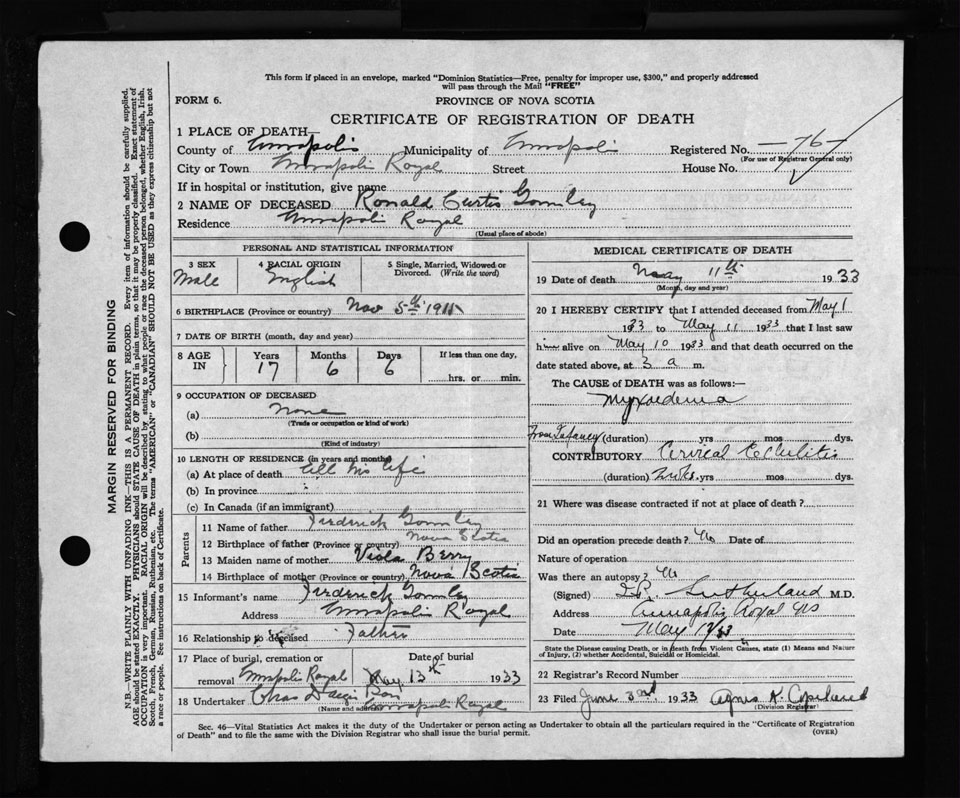 This form if placed in an envelope, marked "Dominion Statistics—Free, penalty for improper use, $300," and properly addressed
will pass through the Mail "FREE"
FORM 6.
PROVINCE OF NOVA SCOTIA
CERTIFICATE OF REGISTRATION OF DEATH
1 PLACE OF DEATH—
County of Annapolis Municipality of Annapolis Registered No. —76—
(For use of Registrar General only)
City or Town Annapolis Royal Street House No.
If in hospital or institution, give name
2 NAME OF DECEASED Ronald Curtis Gormley
Residence Annapolis Royal
(Usual place of abode)
PERSONAL AND STATISTICAL INFORMATION
3 SEX
Male
4 RACIAL ORIGIN
English
5 Single, Married, Widowed or
Divorced. (Write the word)
6 BIRTHPLACE (Province or country) Nov 5th 1915
7 DATE OF BIRTH (month, day and year)
8 AGE
IN
Years
17
Months
6
Days
6
If less than one day,
hrs. or min.
9 OCCUPATION OF DECEASED
(a) None
(Trade or occupation or kind of work)
(b)
(Kind of industry)
10 LENGTH OF RESIDENCE (in years and months)
(a) At place of death all his life
(b) In province
(c) In Canada (if an immigrant)
Parents
11 Name of father Frederick Gormley
12 Birthplace of father (Province or country) Nova Scotia
13 Maiden name of mother Viola Berry
14 Birthplace of mother (Province or country) Nova Scotia
15 Informant's name Frederick Gormley
Address Annapolis Royal
16 Relationship to deceased Father
17 Place of burial, cremation or
removal Annapolis Royal
Date of burial
May 13th 1933
18 Undertaker Chas
(Name and address) Annapolis Royal
MEDICAL CERTIFICATE OF DEATH
19 Date of death May 11th 1933
(Month, day and year)
20 I HEREBY CERTIFY that I attended deceased from May 1
1933 to May 11 1933 that I last saw
him alive on May 10 1933 and that death occurred on the
date stated above, at 3 a m.
The CAUSE of DEATH was as follows:—
Myxoedema
From Infancy (duration) yrs mos dys.
CONTRIBUTORY
(duration) yrs mos dys.
21 Where was disease contracted if not at place of death?
Did an operation precede death? No Date of
Nature of operation
Was there an autopsy? No
(Signed) Sutherland M.D.
Address Annapolis Royal NS
Date May 12/33
State the Disease causing Death, or in death from Violent Causes, state (1) Means and Nature
of Injury, (2) whether Accidental, Suicidal or Homicidal.
22 Registrar's Record Number
23 Filed June 3rd 1933 Agnes K. Copeland
(Division Registrar)
Sec. 46—Vital Statistics Act makes it the duty of the Undertaker or person acting as Undertaker to obtain all the particulars required in the "Certificate of Registration
of Death" and to file the same with the Division Registrar who shall issue the burial permit.
(OVER)
MARGIN RESERVED FOR BINDING
N.B.—WRITE PLAINLY WITH UNFADING INK—THIS IS A PERMANENT RECORD. Every item of information should be carefully supplied.
AGE should be stated EXACTLY. PHYSICIANS should STATE CAUSE OF DEATH in plain terms, so that it may be properly classified. Exact statement of
OCCUPATION is very important. RACIAL ORIGIN will be described by stating to what people or race the deceased person belonged, whether English, Irish,
Scotch, French, German, Russian, Ruthenian, etc. The terms "AMERICAN" or "CANADIAN" SHOULD NOT BE USED as they express citizenship but not
a race or people. See instructions on back of Certificate.